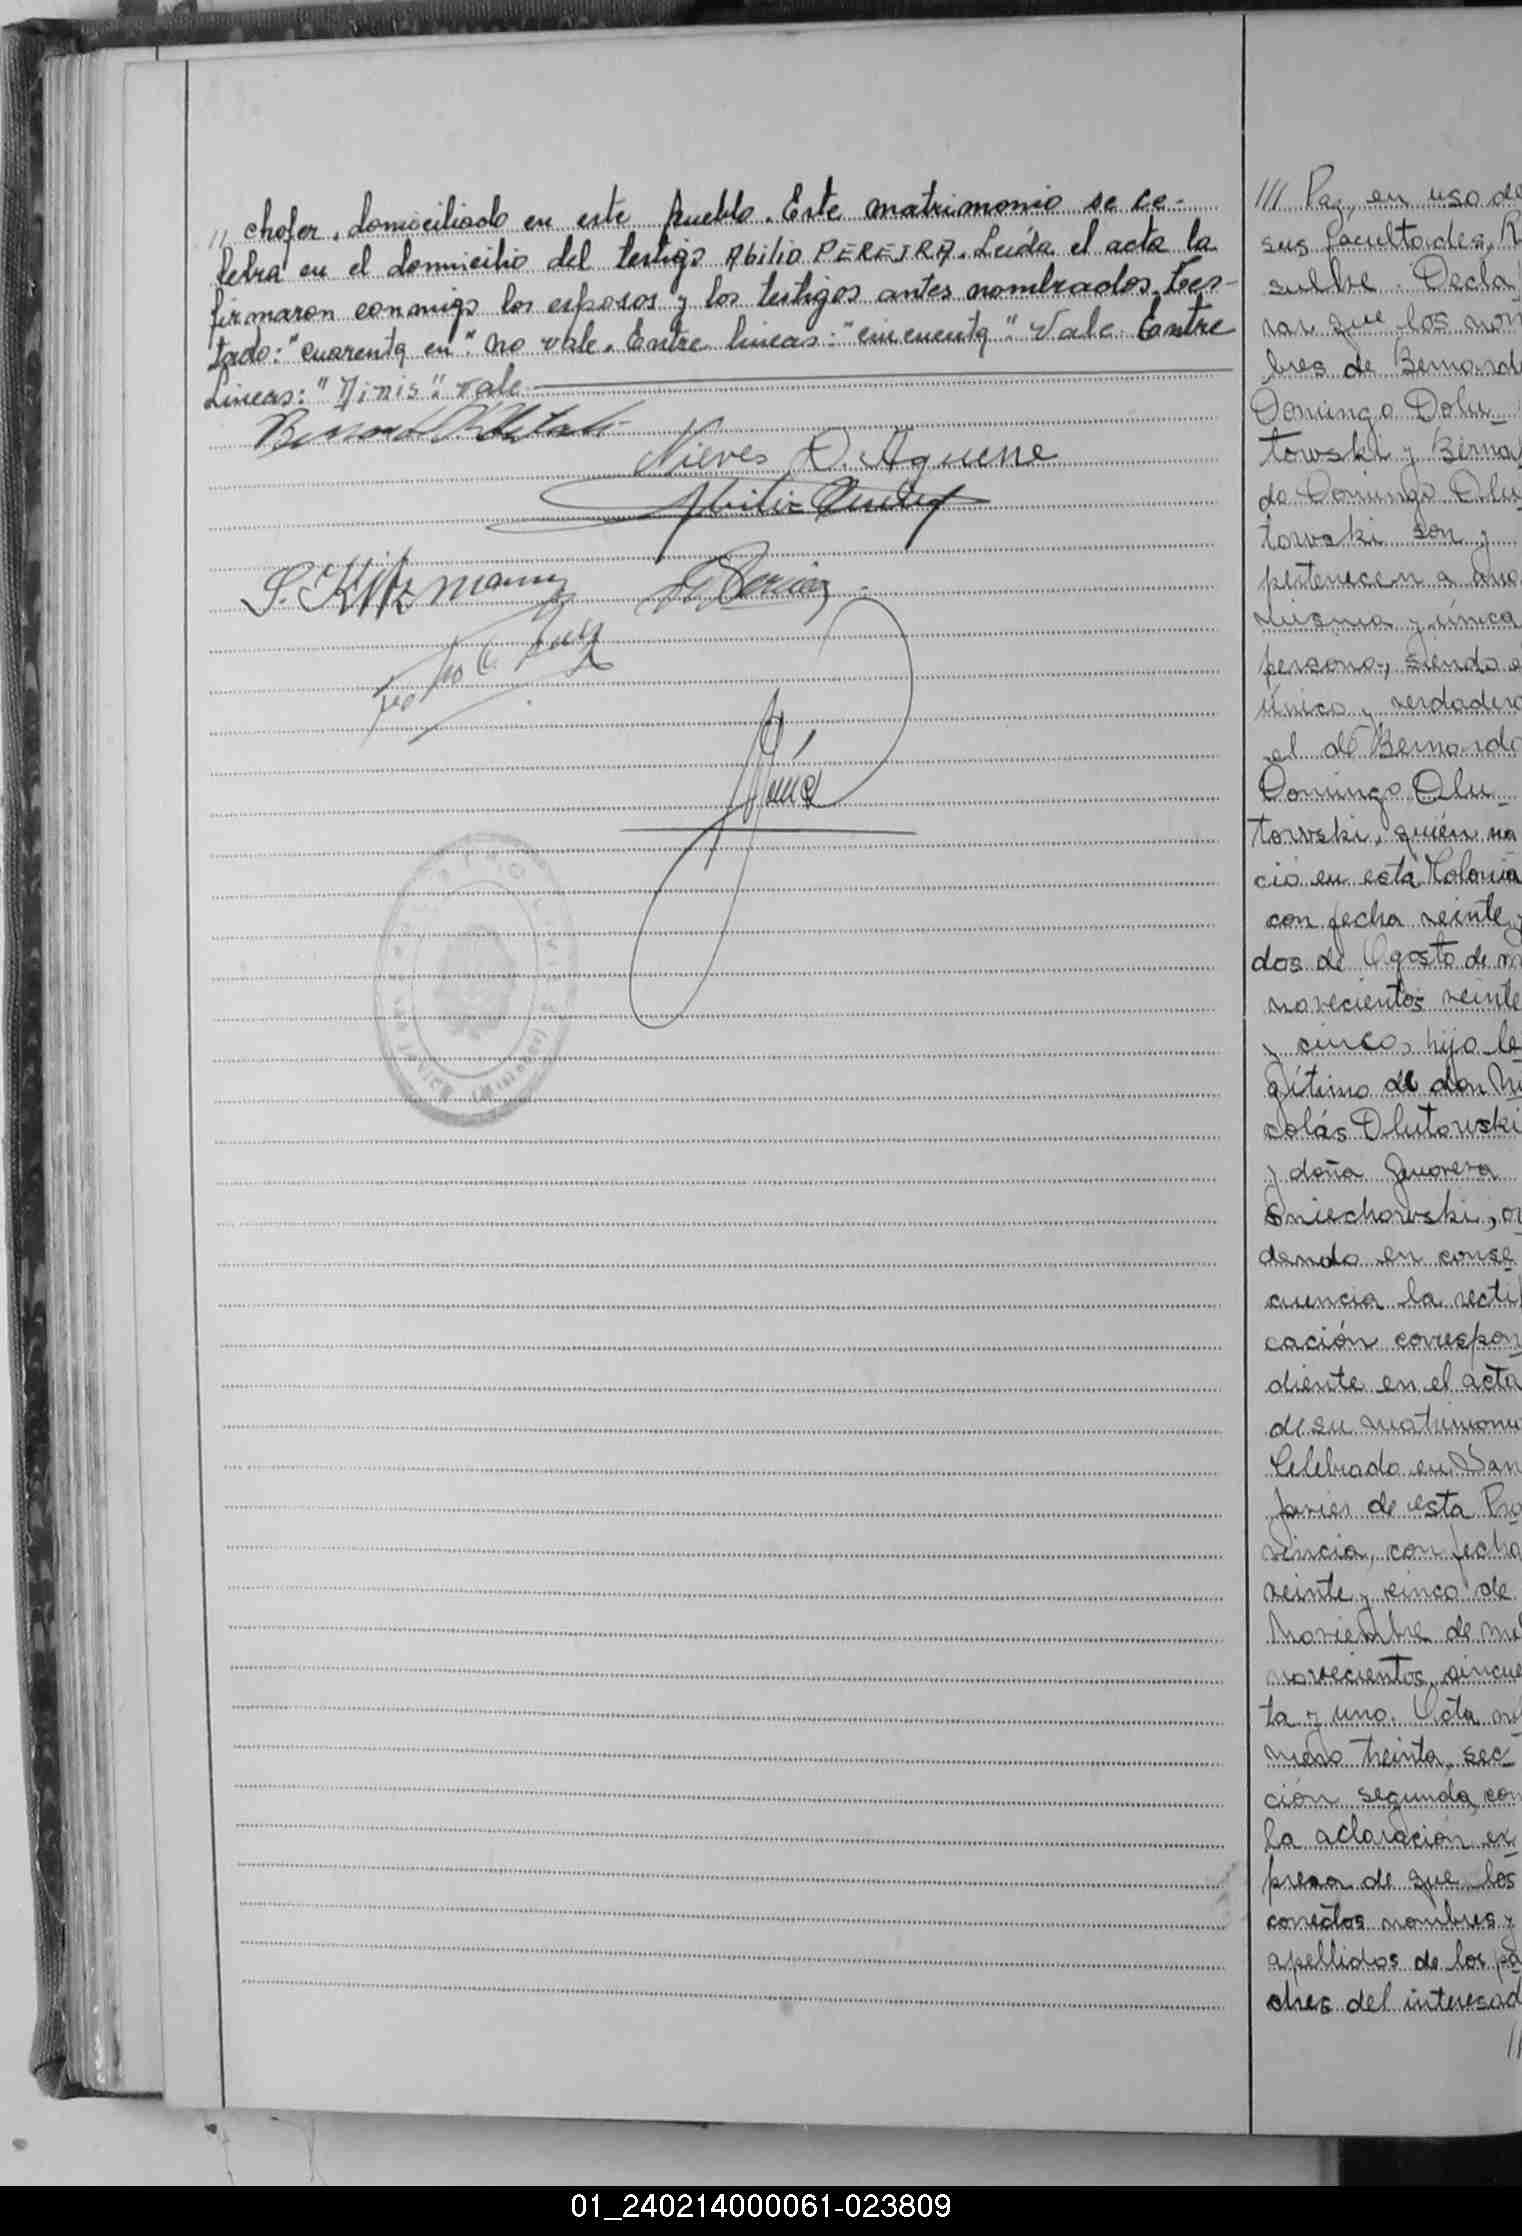 // chofer, domiciliado en este pueblo. Este matrimonio se ce-
lebra en el domicilio del testigo Abilio PEREIRA. Leída el acta la
firmaron conmigo los esposos y los testigos antes nombrados. Tes-
tado: "cuarenta en". no vale. Entre lineas: "cincuenta". Vale. Entre
Lineas: "Dinis". vale
Nieves D. Aguerre
Abilio
S. Kitzmann
/// Paz, en uso de
sus facultades, R
suelve: Decla
rar que los nom
bres de Bernard
Domingo Dolu_
towski y Berna
do Domingo Dlu
towski son y
pertenecen a una
misma y única
persona, siendo e
único y verdadero
el de Bernardo
Domingo Dlu_
towski, quién na
ció en esta Colonia
con fecha veinte y
dos de Agosto de m
novecientos veinte
y cinco, hijo le
gítimo de don Ni
colás Dlutowski
y doña
Sniechowski, or
denando en conse
cuencia la rectifi
cación correspon
diente en el acta
de su matrimonio
Celebrado en San
Javier de esta Pro
vincia, con fecha
veinte y cinco de
Noviembre de mil
novecientos cincuen
ta y uno. Acta nú
mero treinta, sec_
ción segunda, con
la aclaración ex
presa de que los
correctos nombres y
apellidos de los pa
dres del interesad
//
01_240214000061-023809